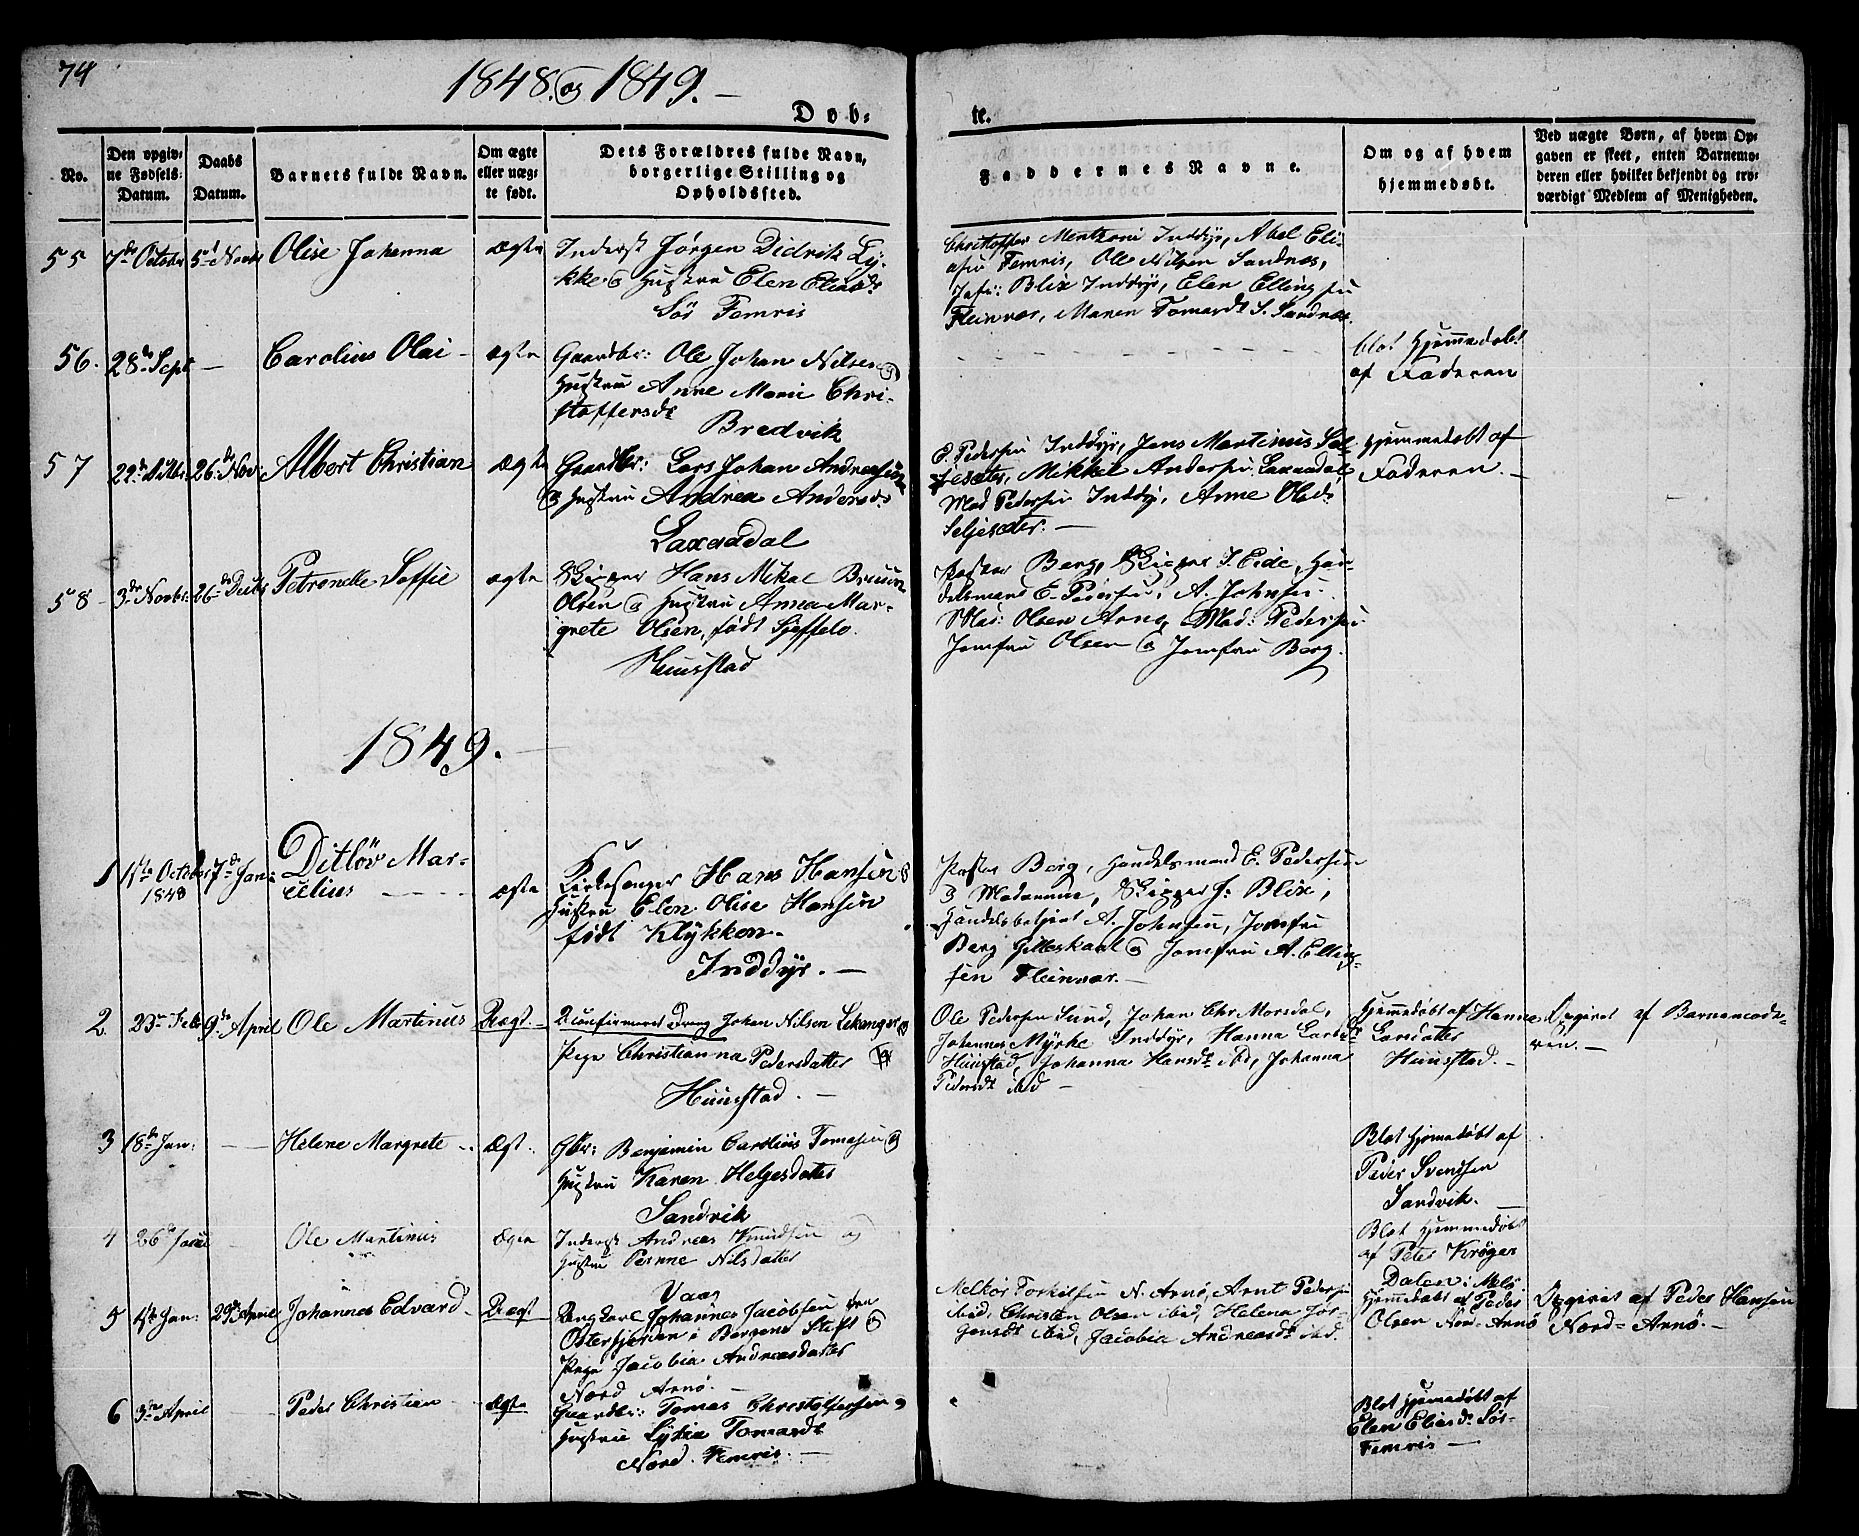 74
1848. og 1849. —
Døb-
te.
No.
Den opgiv-
ne Fødsels-
Datum.
Daabs
Datum.
Barnets fulde Navn.
Om ægte
eller uæg-
te født.
Dets Forældres fulde Navn,
borgerlige Stilling og
Opholdsted.
Faddernes Navne.
Om og af hvem
hjemmedøbt.
Ved uægte Børn, af hvem Op-
gaven er skeet, enten Barnemo-
deren eller hvilket bekjendt og tro-
værdigt Medlem af Menigheden.
55 7de October 5te Novbr Olise Johanna ægte
Inderst Jørgen Didrik Ly-
kke og Hustru Elen Eliasdr
Sør Femris
Christoffer Mentzoni Inddyr, Abel Eli-
asen Femris, Ole Nilsen Sandnes,
Blix Inddyr, Elen Ellingsen
Fleinvær, Maren Tomasdt S. Sandnes.
56. 28de Sept — Carolius Olai — ægte
Gaardbr: Ole Johan Nilsen og
Hustru Anne Marie Chri-
stoffersdr
Bredvik
blot Hjemmedøbt
af Faderen
57 22de 26de Nov: Albert Christian ægte
Gaardbr: Lars Johan Andreassen
og Hustru Andrea Andersdr
Laxaadal
E. Pedersen Inddyr, Jens Martinus Sel-
jesæter, Mikkel Andersen Laxaadal,
Mad Pedersen Inddyr, Anne Olsdr
Seljesæter. —
Hjemmedøbt af
Faderen. —
58 3de Novbr. 26de Decbr Petronelle Soffie ægte
Skipper Hans Mikal Bruun
Olsen og Hustru Anna Mar-
grete Olsen, født Sjeffelo.
Hunstad
Pastor Berg, Skipper J. Eide, Han-
delsmand E. Pedersen, A. Johnsen
Mad: Olsen Arnø, Mad: Pedersen
Jomfru Olsen og Jomfru Berg.
1849.
1 1ste October 7de Jan: Ditløv Mar-
1848 celius — ægte
Kirkesanger Hans Hansen &
Hustru Elen Olise Hansen
født Klykken.
Inddyr. —
Pastor Berg, Handelsmand E. Pedersen
og Madamme, Skipper J: Blix,
Handelsbetjent A. Johnsen, Jomfru
Berg Gilleskaal og Jomfru A. Elling-
sen Fleinvær. —
2. 23de Febr 9de April Ole Martinus Uægt.
Ukonfirmeret Dreng Johan Nilsen Lekanger og
Pige Christianna Pedersdatter
Hunstad. —
Ole Pedersen Sund, Johan Chr Morsdal,
Johannes Myrke Inddyr, Hanna Larsdr
Hunstad, Johanna Hansdr ibid, Johanna
Pedersdt ibid —
Hjemmedøbt af Hanna
Larsdatter
Hunstad. —
Opgivet af Barnemode-
ren. —
3 18de Jan: — Helene Margrete — Ægt.
Gbr: Benjamin Carolius Tomassen og
Hustru Karen Helgesdatter
Sandvik
Blot Hjemmedøbt af
Peder Svendsen
Sandvik.
4 26de — Ole Martinus Ægte
Inderst Andreas Knudsen og
Hustru Pernne Nilsdatter
Vaag
Blot Hjemmedøbt
af Peter Krøger
Dalen i Melø
5 Jan: 29de April Johannes Edvard Uægt
Ungkarl Johannes Jacobsen fra
Osterfjorden i Bergens Stift og
Pige Jacobia Andreasdatter
Nord Arnø. —
Melkør Torkilsen N. Arnø, Arnt Pedersen
ibid, Christen Olsen ibid, Helena Jør-
gensdt ibid, Jacobia Andreasdt ibid.
Hjemmedøbt af Peder
Olsen Nord-Arnø
Opgivet af Peder Hansen
Nord-Arnø. —
6 3de April — Peder Christian — Ægte
Gaardbr: Tomas Christoffersen og
Hustru Lydia Tomasdt
Nord. Femris. —
Blot Hjemmedøbt af
Elen Eliasdr Sør-
Femris —